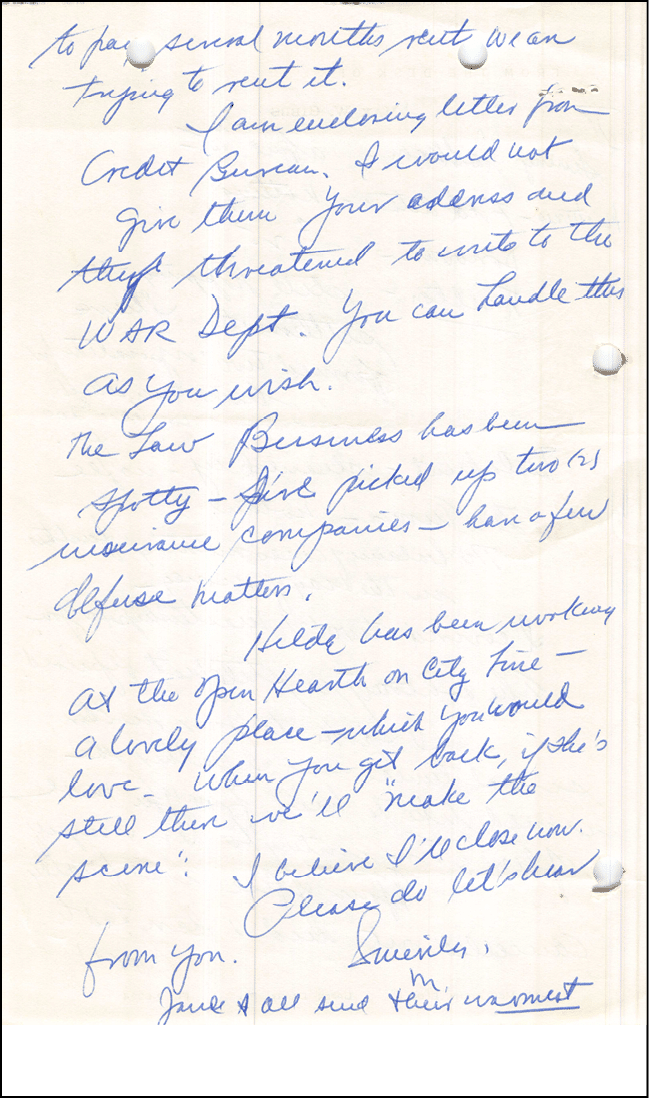 to pay several months rent we are
trying to rent it.
I am enclosing letter from
Credit Bureau. I would not
give them your address and
they threatened to write to the
WAR Dept. You can handle this
as you wish.
The Law Business has been
spotty – I've picked up two (2)
insurance companies – have a few
defense matters.
Hilda has been working
at the Open Hearth on City Line –
a lovely place – which you would
love. When you get back, if she's
still there we'll "make the
scene". I believe I'll close now.
Please do let's hear
from you. Sincerely,
m
& all send their warmest